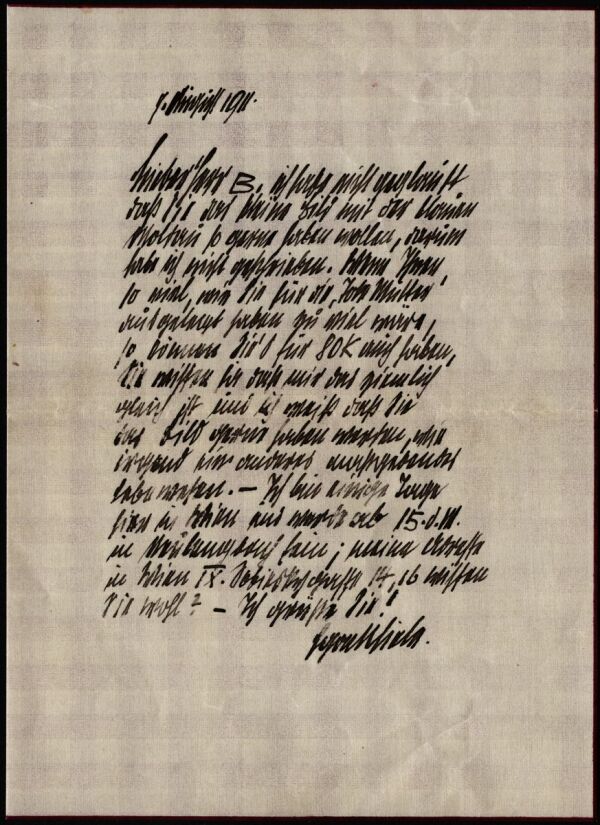 7. August 1911.
Lieber Herr B. ich habe nicht geglaubt
daß Sie das kleine Bild mit der blauen
Moldau so gerne haben wollen, darum
habe ich nicht geschrieben. Wenn Ihnen,
so viel, wie Sie für die „Tote Mutter"
ausgelegt haben zu viel wäre,
so können Sie's für 80K auch haben,
Sie wissen ja daß mir das ziemlich
gleich ist und ich weiß daß Sie
das Bild gerne haben werden, wie
irgend ein anderes
Lebewesen. — Ich bin einige Tage
hier in Wien und werde ab 15. d. M.
in Neulengbach sein; meine Adresse
in Wien IX. Sobieskygasse 14, 16 wissen
Sie wohl? — Ich grüße Sie!
Egon Schiele.